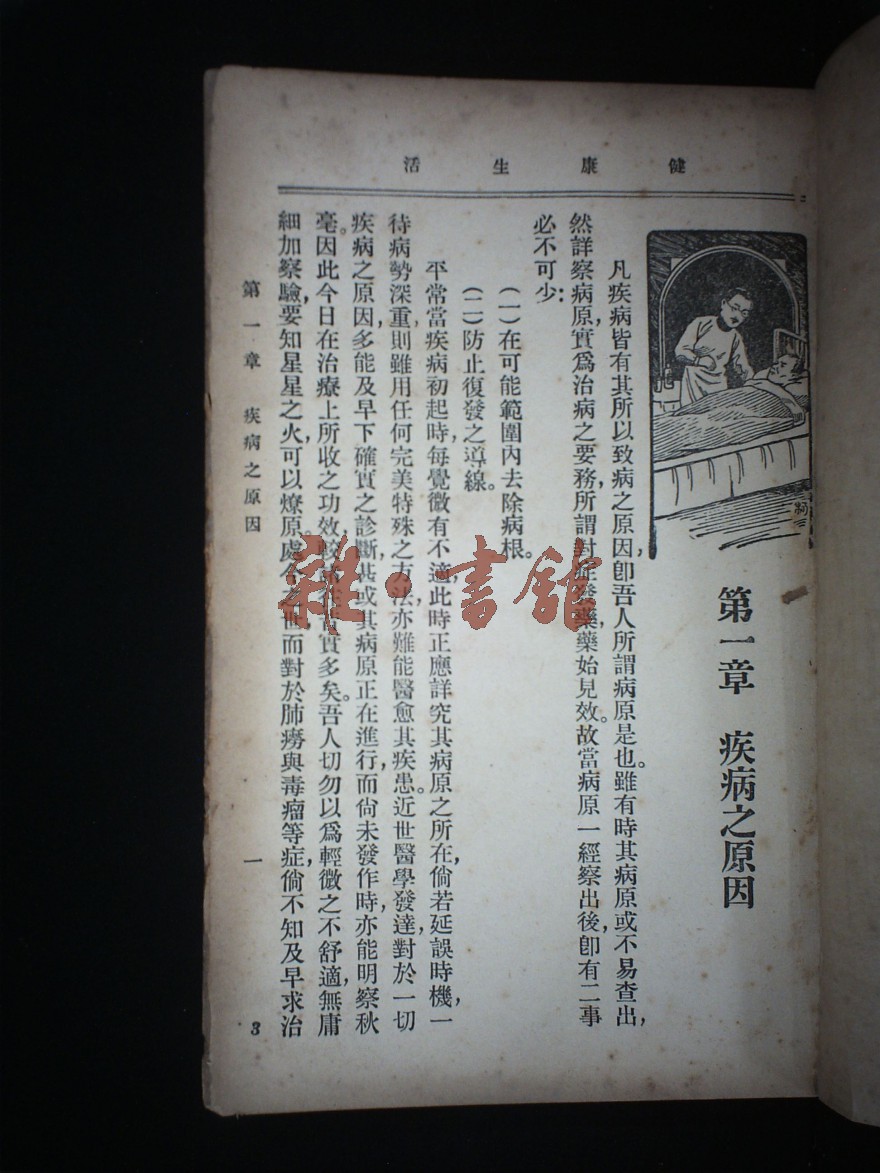 健康生活
第一章　疾病之原因
凡疾病皆有其所以致病之原因,卽吾人所謂病原是也。雖有時其病原或不易查出,
然詳察病原,實爲治病之要務,所謂對症發藥,藥始見效。故當病原一經察出後,卽有二事
必不可少:
(一)在可能範圍內去除病根。
(二)防止復發之導線。
平常當疾病初起時,每覺微有不適,此時正應詳究其病原之所在,倘若延誤時機,一
待病勢深重,則雖用任何完美特殊之方法,亦難能醫愈其疾患。近世醫學發達,對於一切
疾病之原因,多能及早下確實之診斷,甚或其病原正在進行,而尙未發作時,亦能明察秋
毫。因此今日在治療上所收之功效,較實多矣。吾人切勿以爲輕微之不舒適,無庸
細加察驗,要知星星之火,可以燎原。處今之世,而對於肺癆與毒瘤等症,倘不知及早求治
第一章　疾病之原因
一
3
雜·書館